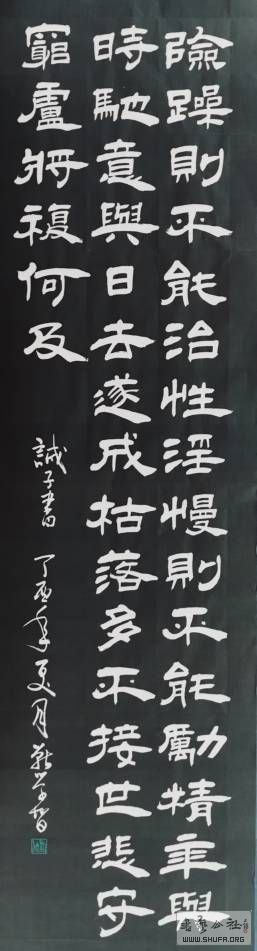 險躁則不能治性淫慢則不能勵精年與
時馳意與日去遂成枯落多不接世悲守
窮盧將複何及
誡子書 丁酉年夏月
WWW.SHUFA.ORG